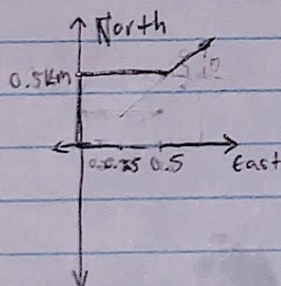 North
0.5km
0.5 East